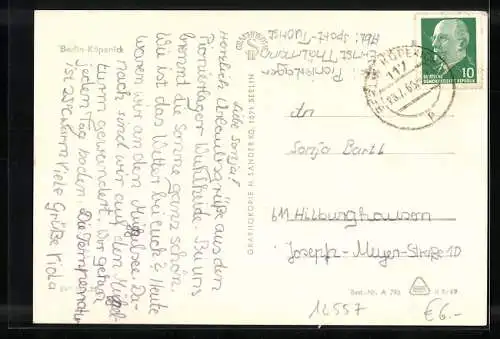 Berlin-Köpenick
Liebe Sonja!
Herzlich Urlaubsgrüße aus dem
Pionierlager Wuhlheide. Bei uns
brennt die Sonne ganz schön.
Wie ist das Wetter bei euch? Heute
waren wir an den Müggelsee. Da-
nach sind wir auf den Müggel-
turm gewandert. Wir gehen
jedem Tag baden. Die Temperatur
ist 25°C warm Viele Grüße Viola
Pionierlager
Ernst Thälmann
Abt. Sport-Turnen
GRAFOKOPIE H. SANDER KG, 1071 BERLIN
117
DEUTSCHE
DEMOKRATISCHE REPUBLIK
10
An
Sonja Barth
611 Hilburghausen
Joseph-Meyer-Straße 10
Best.-Nr. A 793
12557
€ 6.-